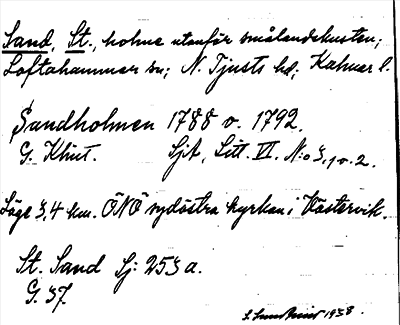 Sand, St., holme utanför smålandskusten;
Loftahammar sn; N. Tjusts hd; Kalmar l.
Sandholmen 1788 o. 1792.
G. Klint. Sjk, Litt. VI. N:o 3, 1 o. 2.
Läge 3,4 km. ÖNÖ sydöstra kyrkan i Västervik.
St. Sand Sj: 253 a.
G. 37.
1938.